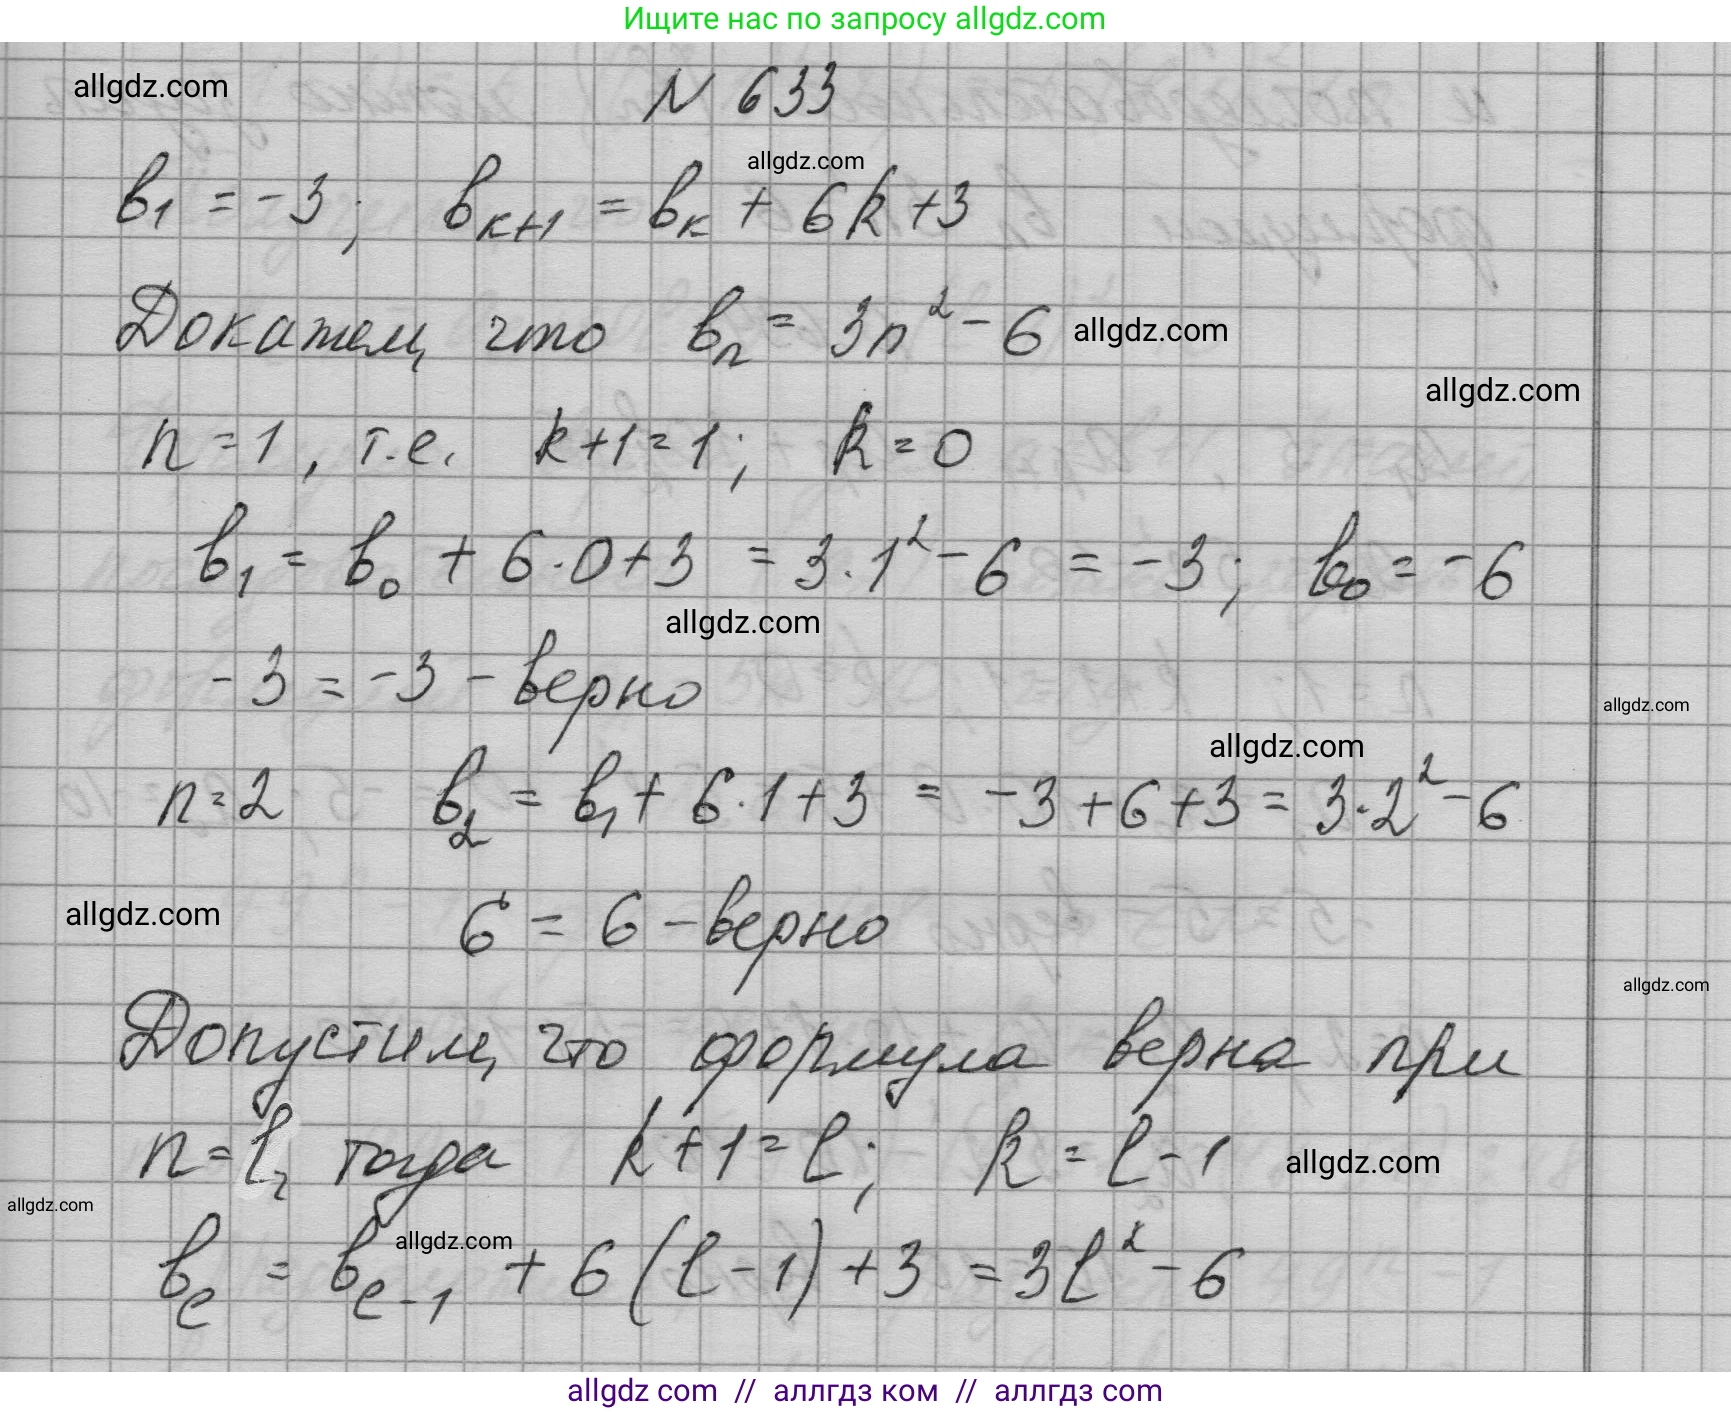 Ищите нас по запросу allgdz.com
allgdz.com
N 633
allgdz.com
в₁ = -3; вₖ₊₁ = вₖ + 6k + 3
Докажем, что вₙ = 3n² - 6
allgdz.com
allgdz.com
n = 1, т.е. k+1 = 1; k = 0
в₁ = в₀ + 6·0 + 3 = 3·1² - 6 = -3; в₀ = -6
allgdz.com
-3 = -3 - верно
allgdz.com
allgdz.com
n = 2 в₂ = в₁ + 6·1 + 3 = -3 + 6 + 3 = 3·2² - 6
allgdz.com
6 = 6 - верно
allgdz.com
Допустим, что формула верна при
n = l, тогда k+1 = l; k = l - 1
allgdz.com
allgdz.com
allgdz.com
вₗ = вₗ₋₁ + 6(l - 1) + 3 = 3l² - 6
allgdz com // аллгдз ком // аллгдз com